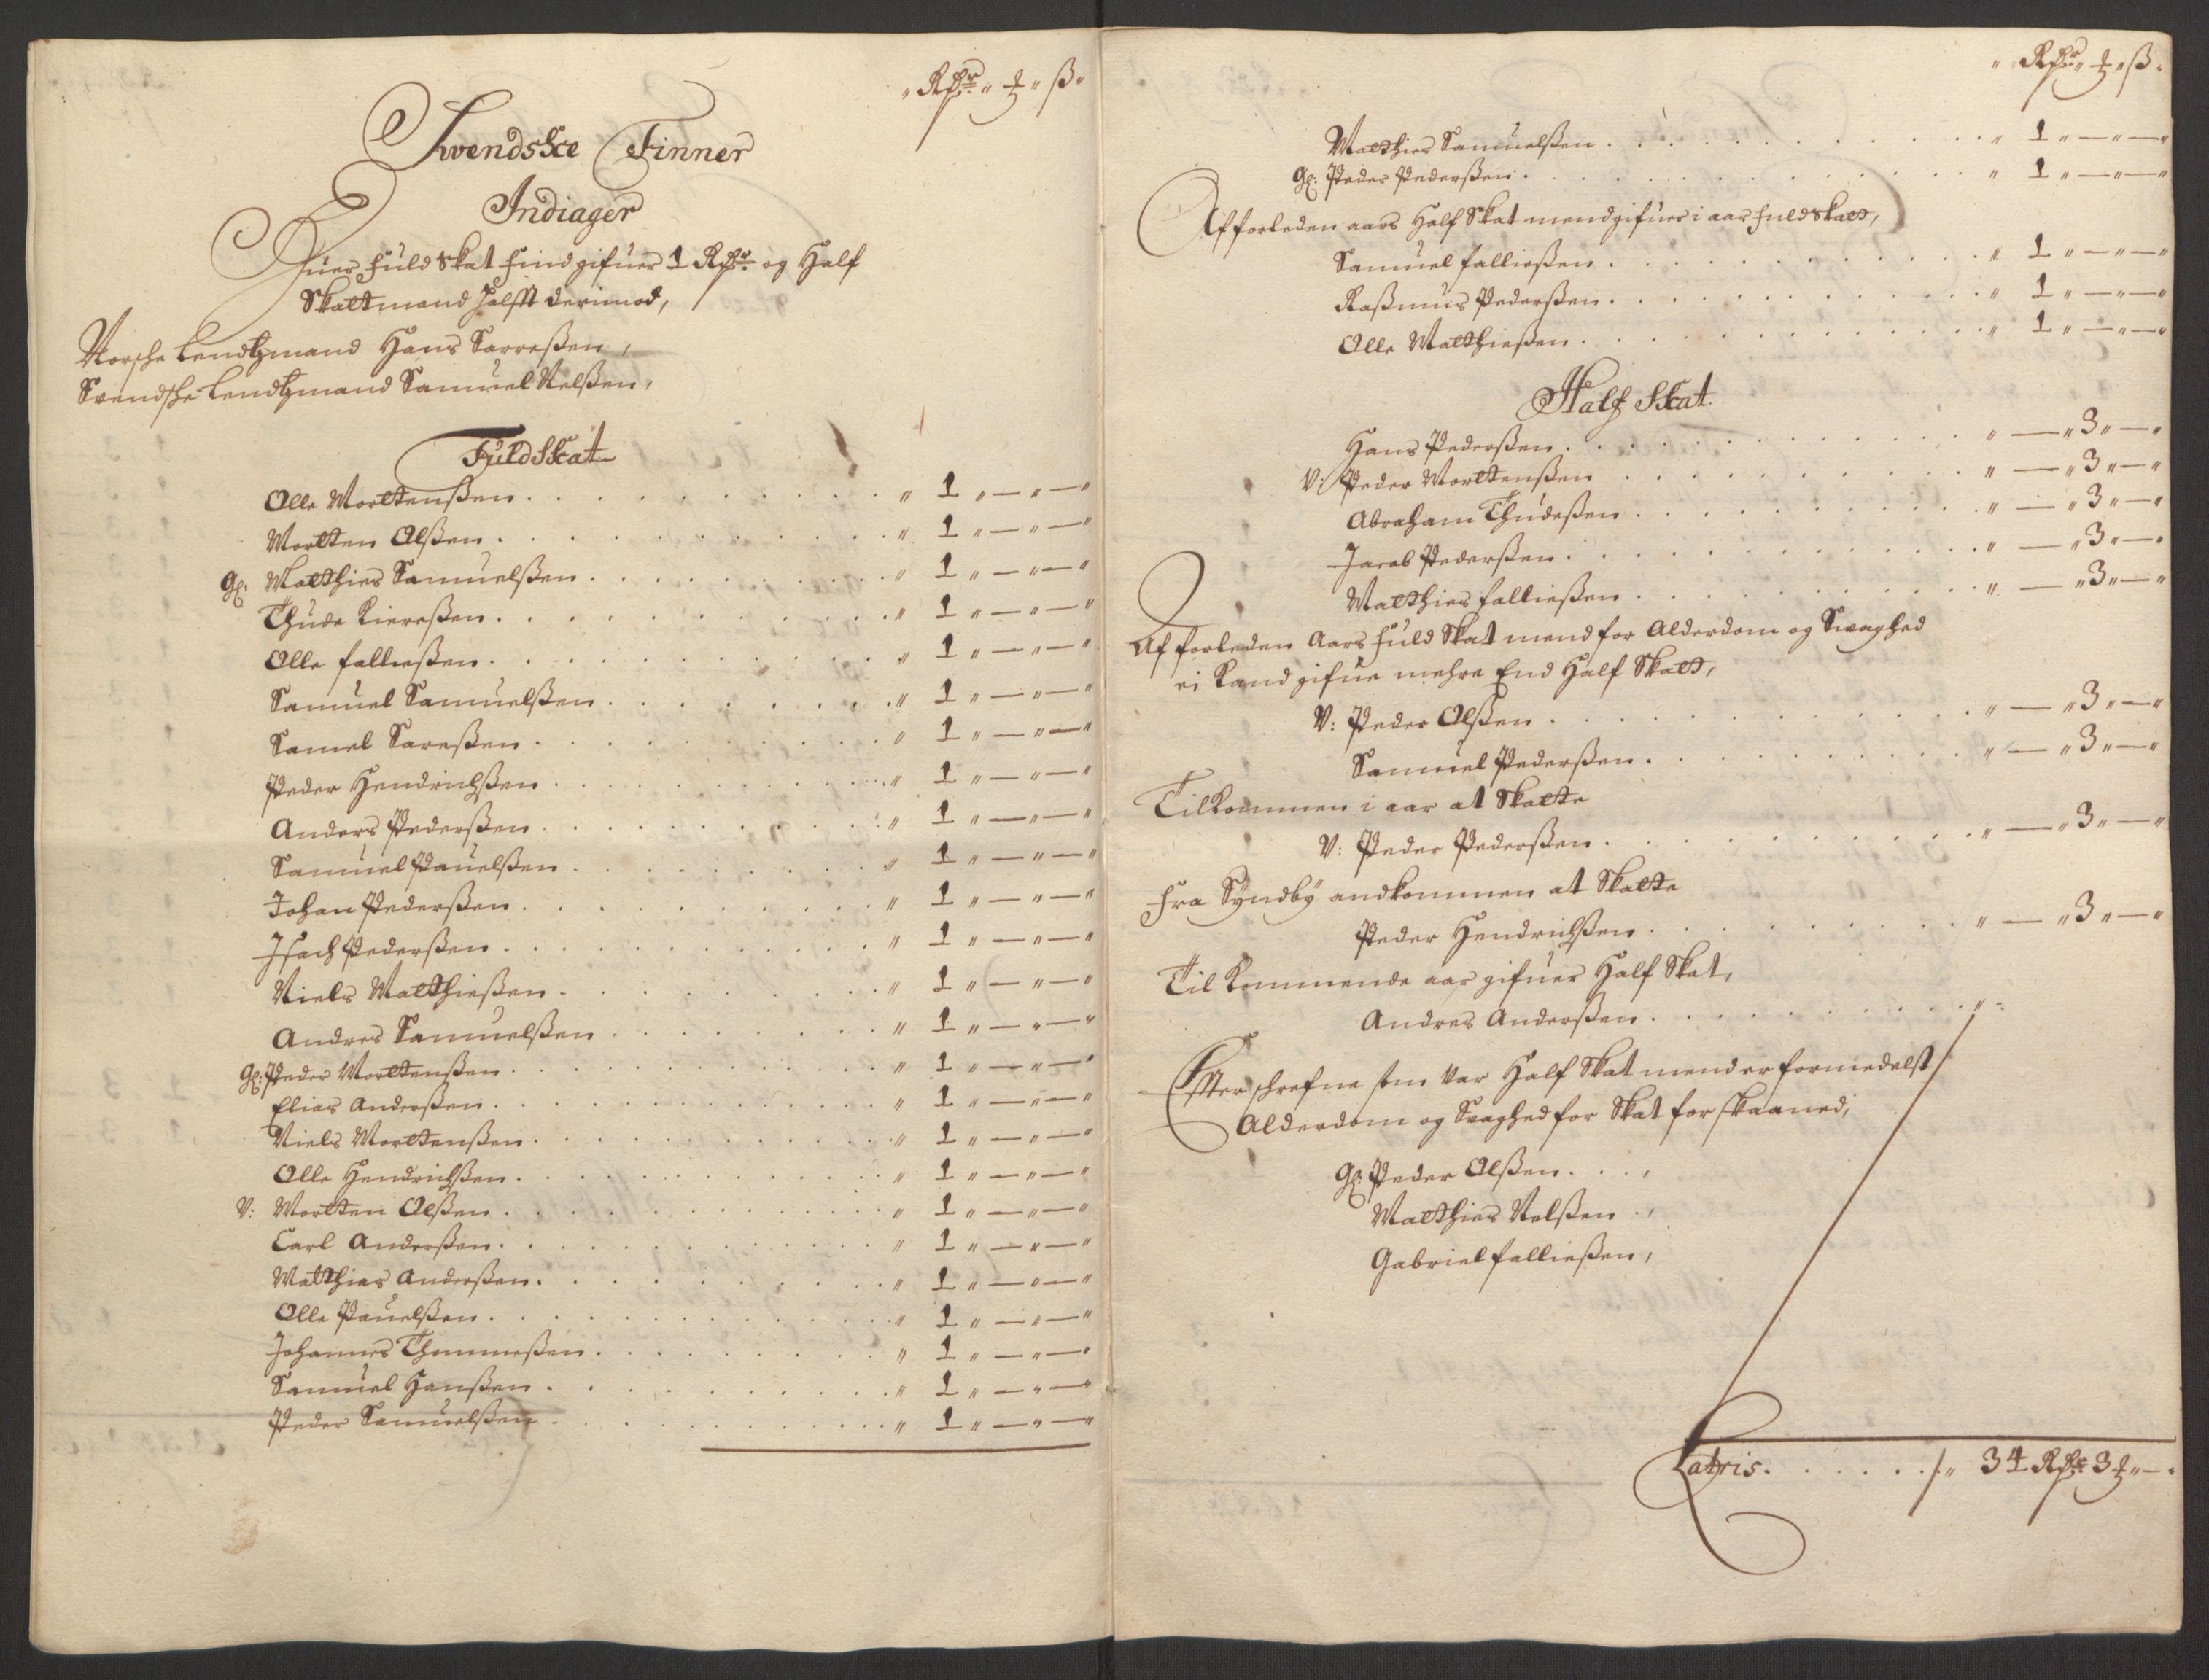 „ Rdr „ ₰ „ ß „
Swendske Finner
Indiager
Huer fuld skat find gifuer 1 Rdr og Half
Skattmand halfft derimod,
Norsche Lendtzmand Hans Sarreßen,
Svendsche Lendtzmand Samuel Nelßen,
Fuld Skat
Olle Morttenßen . . . „ 1 „ — „ — „
Mortten Olßen . . . „ 1 „ — „ — „
Gl: Matthies Samuelßen . . . „ 1 „ — „ — „
Thude Kiereßen . . . „ 1 „ — „ — „
Olle falließen . . . „ 1 „ — „ — „
Samuel Samuelßen . . . „ 1 „ — „ — „
Samel Sareßen . . . „ 1 „ — „ — „
Peder Hendrichßen . . . „ 1 „ — „ — „
Anders Pederßen . . . „ 1 „ — „ — „
Samuel Pauelßen . . . „ 1 „ — „ — „
Johan Pederßen . . . „ 1 „ — „ — „
Isach Pederßen . . . „ 1 „ — „ — „
Niels Matthießen . . . „ 1 „ — „ — „
Andres Samuelßen . . . „ 1 „ — „ — „
Gl: Peder Morttenßen . . . „ 1 „ — „ — „
Elias Anderßen . . . „ 1 „ — „ — „
Niels Morttenßen . . . „ 1 „ — „ — „
Olle Hendrichßen . . . „ 1 „ — „ — „
V: Mortten Olßen . . . „ 1 „ — „ — „
Carl Anderßen . . . „ 1 „ — „ — „
Matthias Anderßen . . . „ 1 „ — „ — „
Olle Pauelßen . . . „ 1 „ — „ — „
Johannes Thommeßen . . . „ 1 „ — „ — „
Samuel Hanßen . . . „ 1 „ — „ — „
Peder Samuelßen . . . „ 1 „ — „ — „
„ Rdr „ ₰ „ ß „
Matthies Samuelßen . . . „ 1 „ — „ — „
Gl: Peder Pederßen . . . „ 1 „ — „ — „
Af forleden aars Half Skat mend gifuer i aar fuld skatt,
Samuel falließen . . . „ 1 „ — „ — „
Raßmus Pederßen . . . „ 1 „ — „ — „
Olle Matthießen . . . „ 1 „ — „ — „
Half Skat
Hans Pederßen . . . „ — „ 3 „ — „
V: Peder Morttenßen . . . „ — „ 3 „ — „
Abraham Thudeßen . . . „ — „ 3 „ — „
Jacob Pederßen . . . „ — „ 3 „ — „
Matthies falließen . . . „ — „ 3 „ — „
Af forleden Aars fuld Skat mend for Alderdom og Svaghed
ei kand gifue mehre End Half Skatt,
V: Peder Olßen . . . „ — „ 3 „ — „
Samuel Pederßen . . . „ — „ 3 „ — „
Tilkommen i aar at Skatte
V: Peder Pederßen . . . „ — „ 3 „ — „
Fra Syndby andkommen at Skatte
Peder Hendrichßen . . . „ — „ 3 „ — „
Til kommende aar gifuer Half Skat,
Andres Anderßen . . . „
Effterschrefne som var Half Skat mend er formedelst
Alderdom og Svaghed for Skat forskaaned,
Gl: Peder Olßen . . . ,
Matthies Nelßen . ,
Gabriel falließen,
Latris . . . . . „ 34 Rdr 3 ₰ „ — „